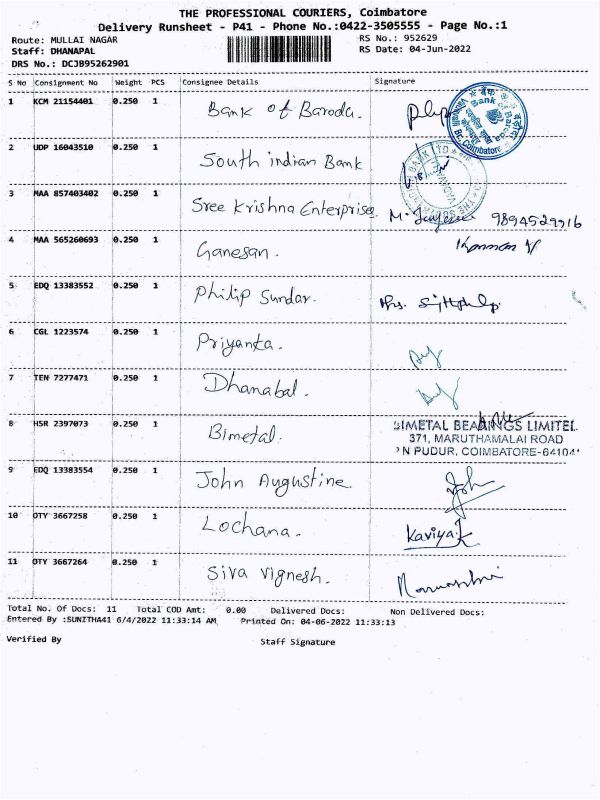 THE PROFESSIONAL COURIERS, Coimbatore
Delivery Runsheet - P41 - Phone No.:0422-3505555 - Page No.:1
Route: MULLAI NAGAR RS No.: 952629
Staff: DHANAPAL RS Date: 04-Jun-2022
DRS No.: DCJB95262901
S No Consignment No Weight PCS Consignee Details Signature
1 KCM 21154401 0.250 1 Bank of Baroda.
2 UDP 16043510 0.250 1 South indian Bank
3 MAA 857403402 0.250 1 Sree Krishna Enterprises 9894529916
4 MAA 565260693 0.250 1 Ganesan.
5 EDQ 13383552 0.250 1 Philip Sundar.
6 CGL 1223574 0.250 1 Priyanka.
7 TEN 7277471 0.250 1 Dhanabal.
8 HSR 2397073 0.250 1 Bimetal. BIMETAL BEARINGS LIMITE
371, MARUTHAMALAI ROAD
N PUDUR, COIMBATORE-64104
9 EDQ 13383554 0.250 1 John Augustine
10 OTY 3667258 0.250 1 Lochana. Kaviya.K
11 OTY 3667264 0.250 1 Siva Vignesh.
Total No. Of Docs: 11 Total COD Amt: 0.00 Delivered Docs: Non Delivered Docs:
Entered By :SUNITHA41 6/4/2022 11:33:14 AM Printed On: 04-06-2022 11:33:13
Verified By Staff Signature